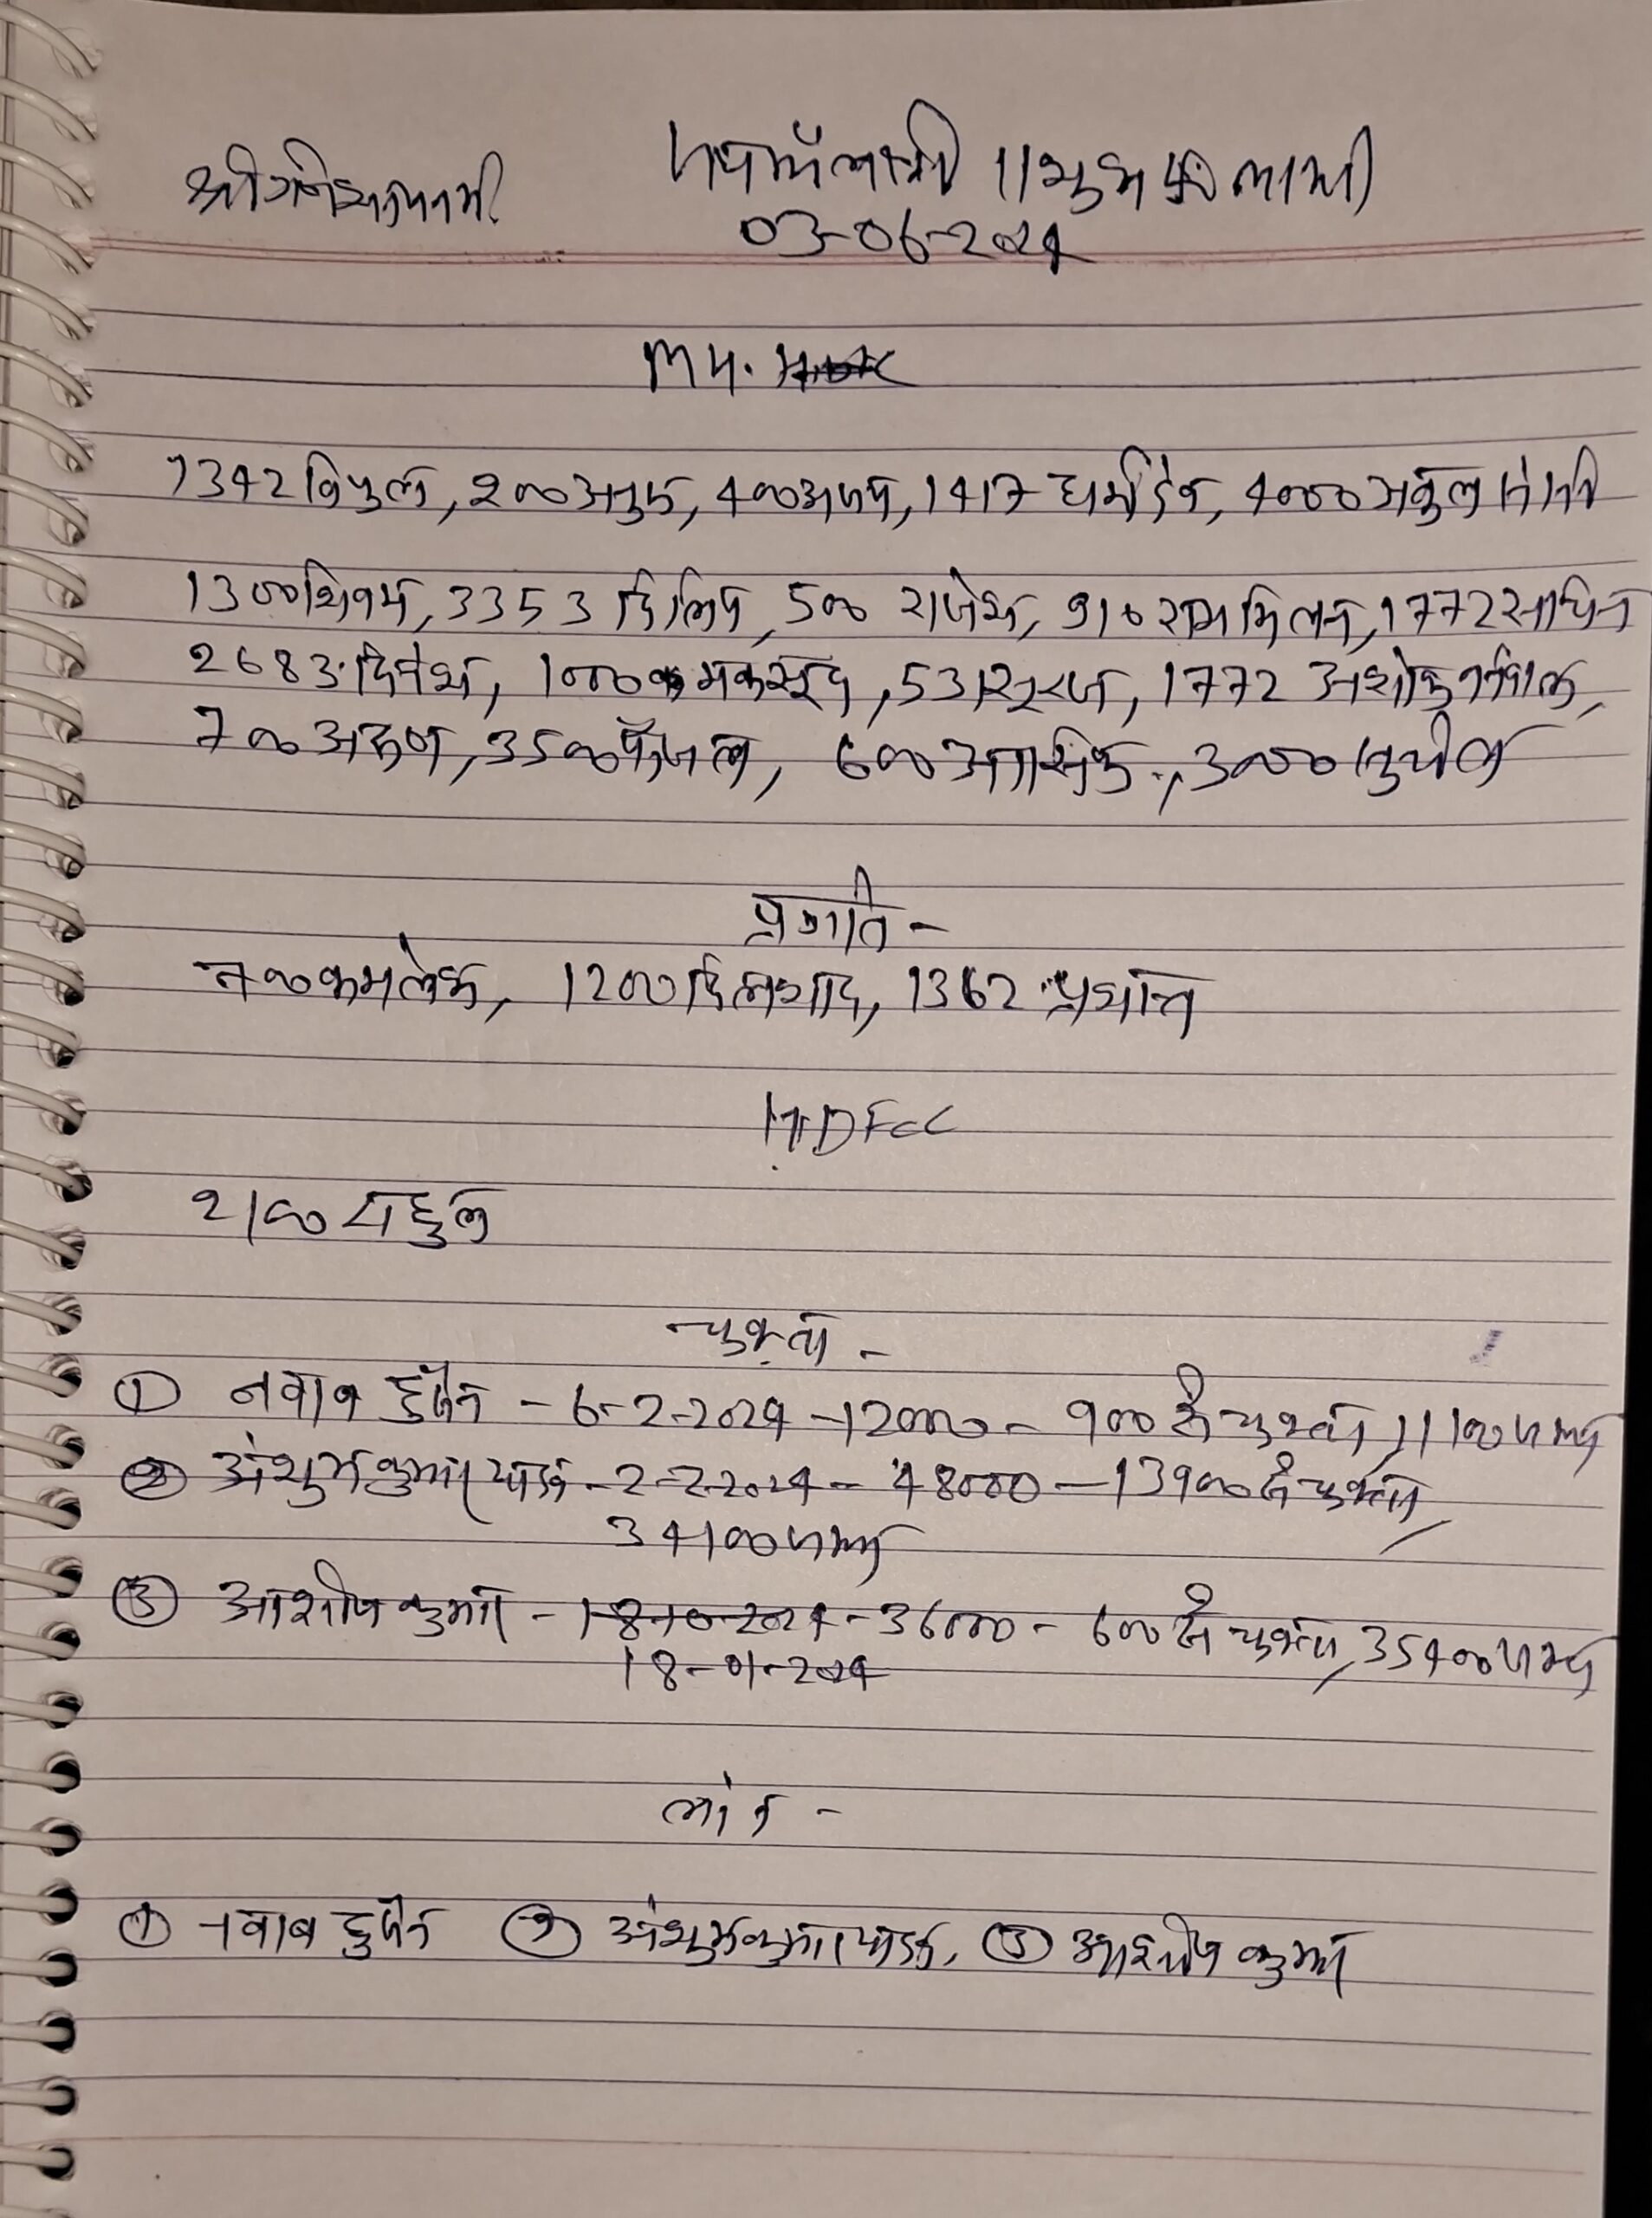 श्री गणेशाय नमः
जय माँ लक्ष्मी ।। शुभ
03-06-2024
MY.
1342 विपुल, 200 अनुज, 400 अजय, 1417 धर्मेंद्र, 4000 नकुल
1300 शिवम, 3353 दिलिप, 500 राजेश, 910 राम मिलन, 1772 साचिन
2683 दिनेश, 1000 मकसूद, 531 सूरज, 1772 अशोक
700 अरूण, 3500 फैजल, 600, 3000
प्रगति -
700 कमलेश, 1200 दिलशाद, 1362 प्रशान्त
HDFCC
2100 राहुल
चुकता -
① नवाब हुसैन - 6-2-2024 - 12000 - 900 से चुकता, 11100 जमा
② अंशुमकुमार - 2-2-2024 - 48000 - 13900 से चुकता,
34100 जमा
③ आशीष कुमार - 18-10-2024 - 36000 - 600 से चुकता, 35400 जमा
18-01-2024
लोन -
① नवाब हुसैन ② अंशुमकुमार, ③ आशीष कुमार